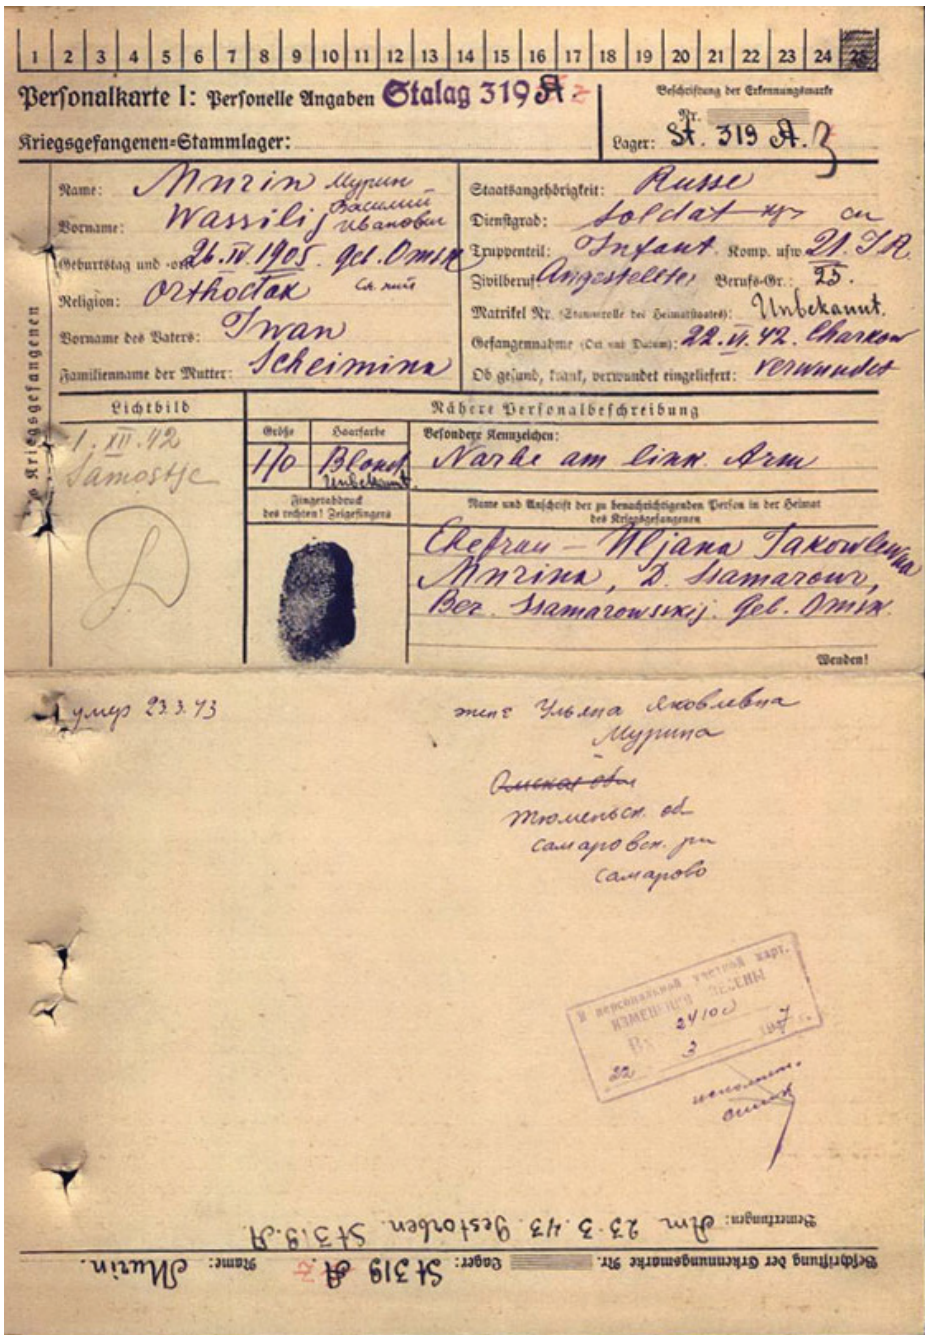 1 2 3 4 5 6 7 8 9 10 11 12 13 14 15 16 17 18 19 20 21 22 23 24 25
Personalkarte I: Personelle Angaben Stalag 319 A
Kriegsgefangenen=Stammlager:
Beschriftung der Erkennungsmarke
Nr.
Lager: St. 319 A.
Kriegsgefangenen
Name: Murin Мурин
Vorname: Wassilij Василий Иванович
Geburtstag und -ort: 26.IV.1905. Geb. Omsk
Religion: Orthodox
Vorname des Vaters: Iwan
Familienname der Mutter: Scheimina
Staatsangehörigkeit: Russe
Dienstgrad: Soldat
Truppenteil: Infant. Komp. usw. 21. I.R.
Zivilberuf: Angestelter Berufs-Gr.: 23.
Matrikel Nr. (Stammrolle des Heimatstaates): Unbekannt.
Gefangennahme (Ort und Datum): 22.VI.42. Charkow
Ob gesund, krank, verwundet eingeliefert: verwundet
Lichtbild
1.XII.42
Samostje
Nähere Personalbeschreibung
Größe Haarfarbe
170 Blond
Unbekannt.
Besondere Kennzeichen:
Narbe am link. Arm
Fingerabdruck
des rechten! Zeigefingers
Name und Anschrift der zu benachrichtigenden Person in der Heimat
des Kriegsgefangenen
Ehefrau – Uljana Jakowlewna
Murina, D. Ssamarowo,
Bez. Ssamarowskij. Geb. Omsk.
Wenden!
умер 23.3.43
жена Ульяна Яковлевна
Мурина
Омская обл
Тюменск. об
Самаровск. рн
Самарово
В персональной учетной карт.
ИЗМЕНЕНИЯ ВНЕСЕНЫ
Вх
22 3
Bemerkungen: Am 23.3.43 Gestorben. St 319. A.
Beschriftung der Erkennungsmarke Nr. Lager: St 319 A Name: Murin.